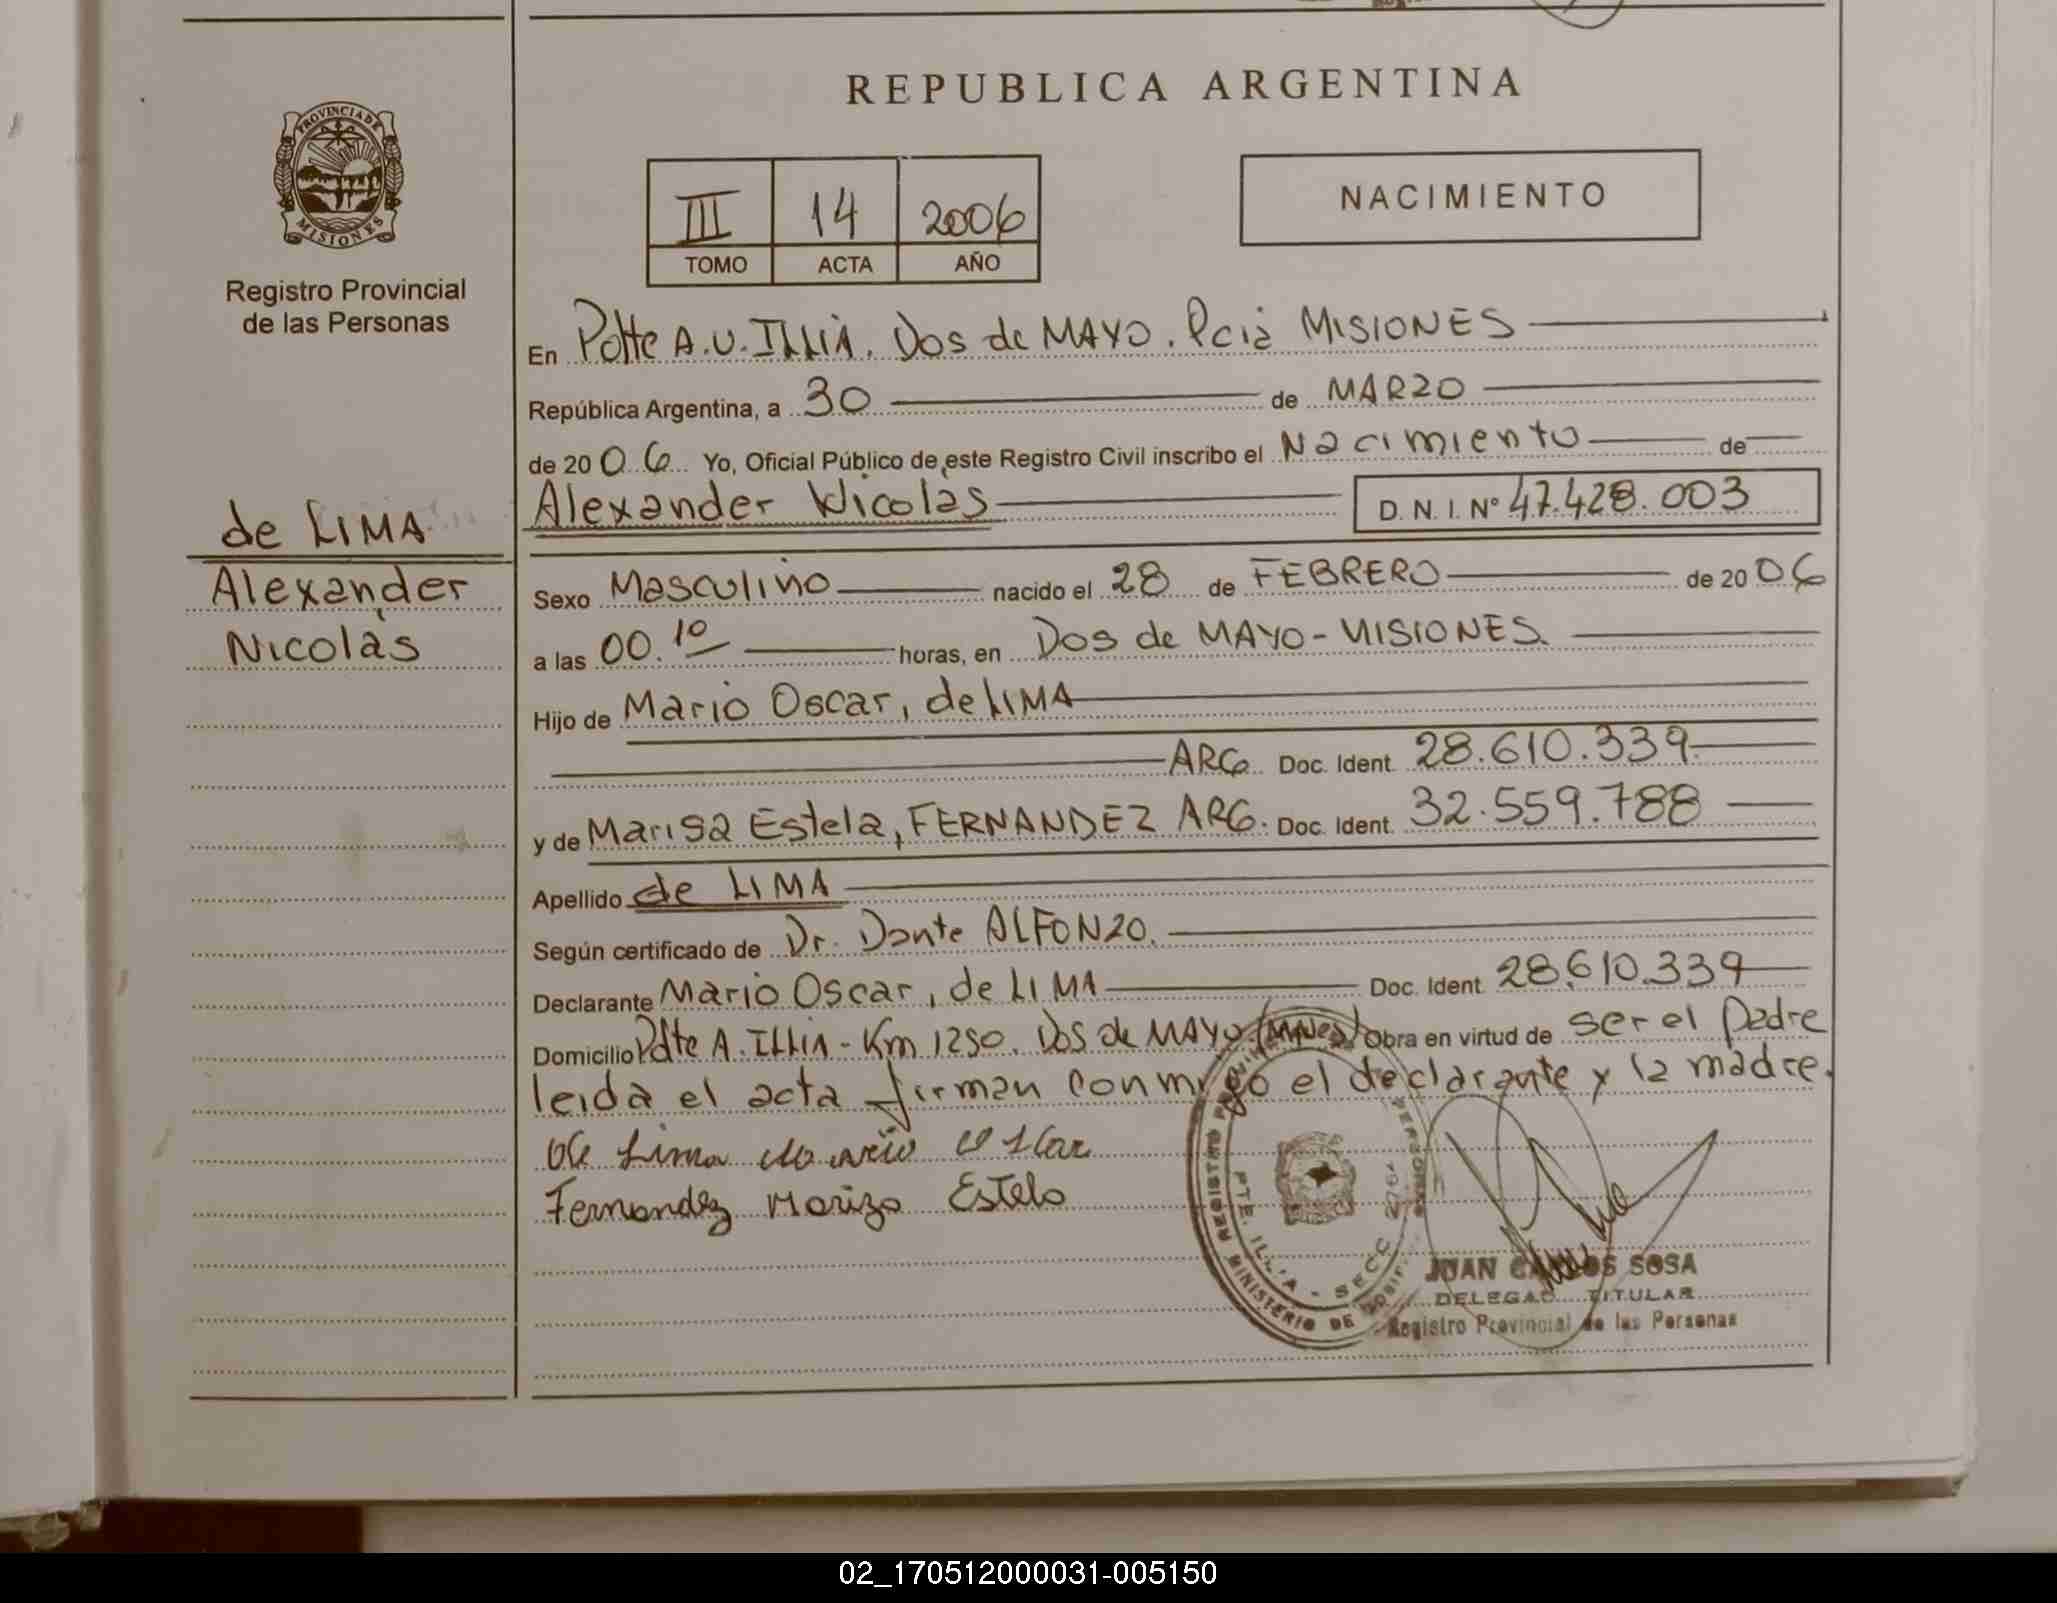 REPUBLICA ARGENTINA
PROVINCIA DE MISIONES
Registro Provincial
de las Personas
III 14 2006
TOMO ACTA AÑO
NACIMIENTO
En Pdte A.U. ILLIA. Dos de MAYO. Pcia MISIONES
República Argentina, a 30 de MARZO
de 2006 Yo, Oficial Público de este Registro Civil inscribo el Nacimiento de
Alexander Nicolàs D. N. I. Nº 47.428.003
de LIMA
Alexander
Nicolàs
Sexo Masculino nacido el 28 de FEBRERO de 2006
a las 00.10 horas, en Dos de MAYO - MISIONES.
Hijo de Mario Oscar, de LIMA
ARG Doc. Ident. 28.610.339
y de Marisa Estela, FERNANDEZ ARG. Doc. Ident. 32.559.788
Apellido de LIMA
Según certificado de Dr. Dante ALFONZO.
Declarante Mario Oscar, de LIMA Doc. Ident. 28.610.339
Domicilio Pdte A. ILLIA - Km 1250. Dos de MAYO (Mnes) Obra en virtud de ser el padre
leida el acta firman conmigo el declarante y la madre.
de Lima Mario Oscar
Fernandez Mariza Estela
PTE. ILLIA - SECC 2761
MINISTERIO DE
JUAN CARLOS SOSA
DELEGADO TITULAR
Registro Provincial de las Personas
02_170512000031-005150